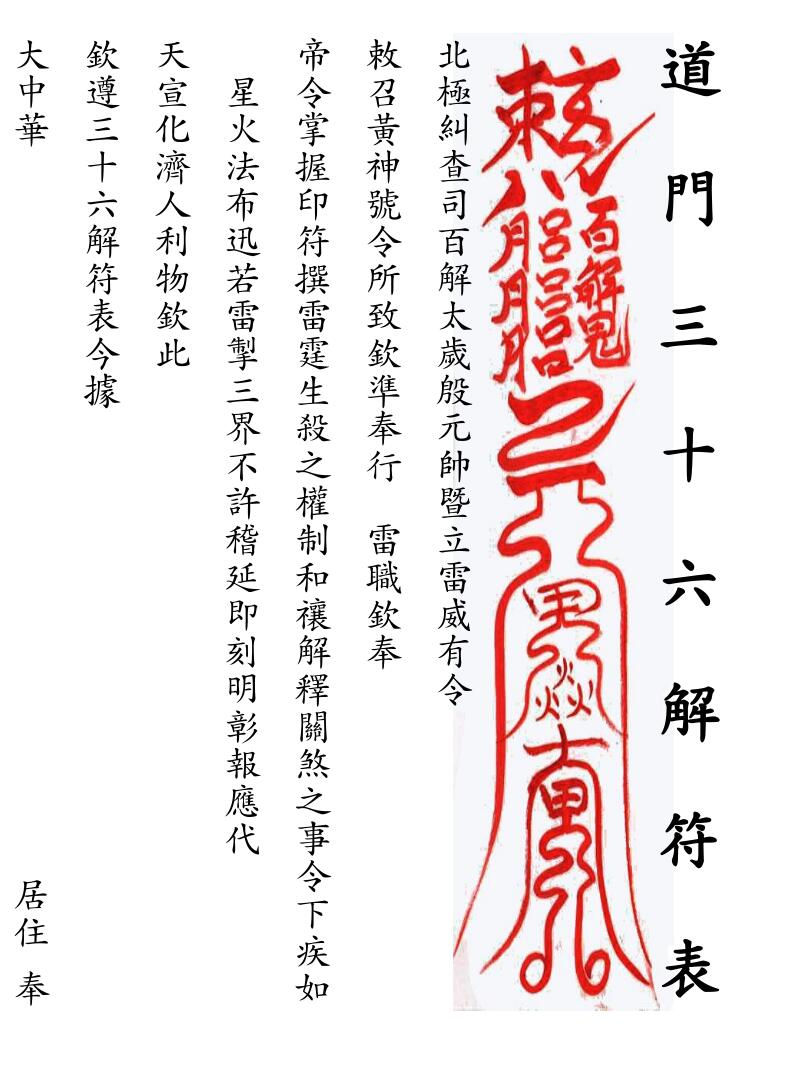 道門三十六解符表
百解鬼
北極糾查司百解太歲殷元帥暨立雷威有令
敕召黃神號令所致欽準奉行　雷職欽奉
帝令掌握印符撰雷霆生殺之權制和禳解釋關煞之事令下疾如
星火法布迅若雷掣三界不許稽延即刻明彰報應代
天宣化濟人利物欽此
欽遵三十六解符表今據
大中華　居住　奉